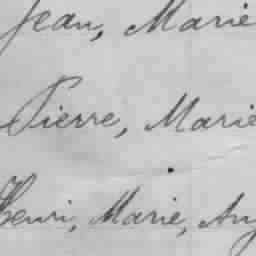 Jean, Marie
Pierre, Marie
Henri, Marie, Aug